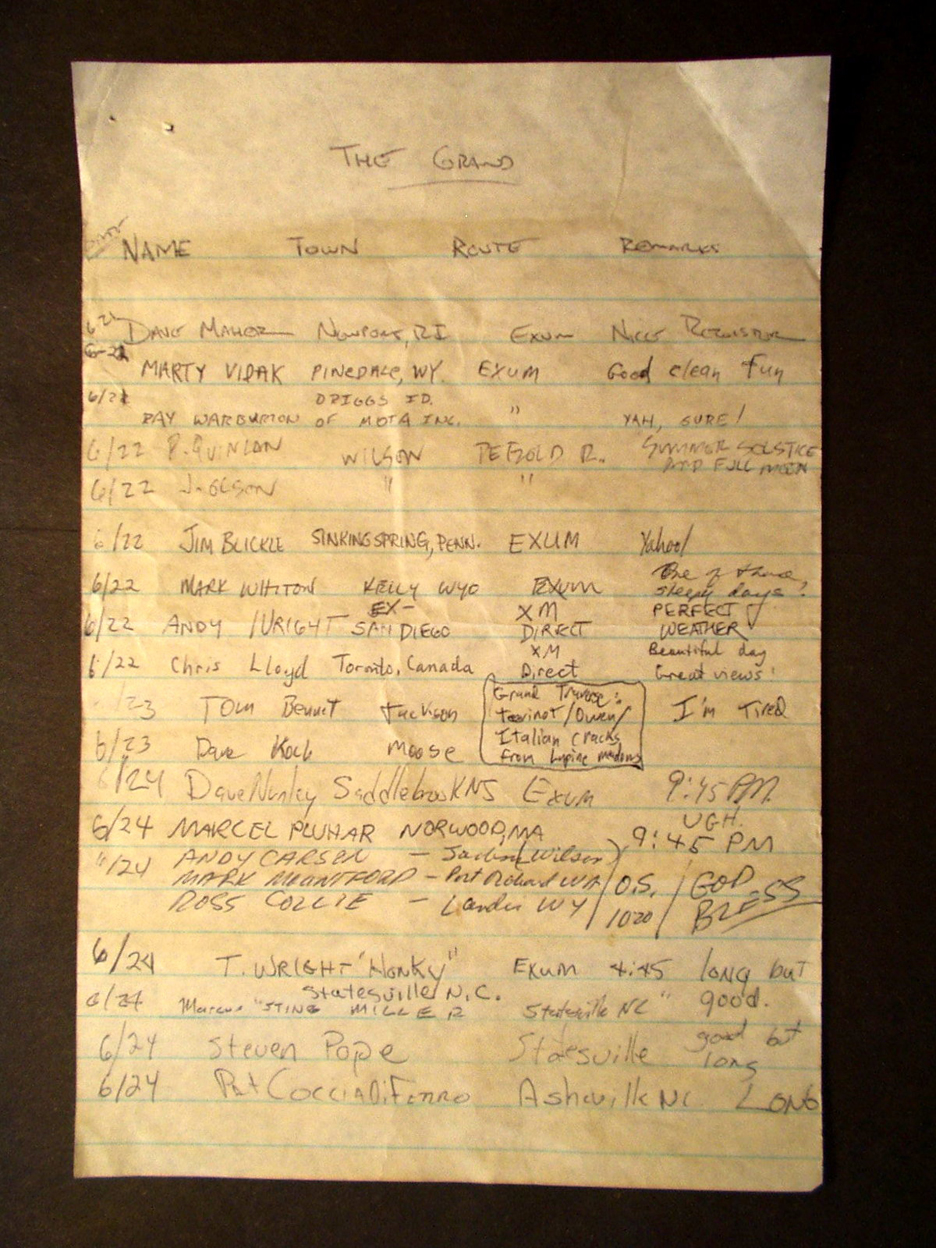 THE GRAND
NAME TOWN ROUTE REMARKS
6-21 DAVE MAHER NEWPORT, RI EXUM NICE REGISTER
6-21 MARTY VIDAK PINEDALE, WY. EXUM Good clean fun
6/21 DRIGGS ID.
RAY WARBURTON OF MOTA INC. " YAH, SURE!
6/22 P. QUINLAN WILSON PETZOLD R. SUMMER SOLSTICE
AND FULL MOON
6/22 J. OLSON " "
6/22 JIM BLICKLE SINKING SPRING, PENN. EXUM Yahoo!
One of those
6/22 MARK WHITON KELLY WYO EXUM sleepy days?
EX- XM PERFECT
6/22 ANDY WRIGHT SAN DIEGO DIRECT WEATHER
XM Beautiful day
6/22 Chris Lloyd Toronto, Canada Direct Great views!
Grand Traverse:
6/23 TOM Bennet Jackson Teewinot/Owen/ I'm Tired
Italian cracks
6/23 Dave Koch Moose from Lupine meadows
6/24 Dave Nunley Saddlebrook NJ EXUM 9:45 PM.
UGH.
6/24 MARCEL PLUHAR NORWOOD, MA 9:45 PM
"/24 ANDY CARSON - Jackson (Wilson)
MARK MOUNTFORD - Port Orchard WA O.S. GOD
ROSS COLLIE - Lander WY 1020 BLESS
6/24 T. WRIGHT "Honky" EXUM 4:45 long but
Statesville, N.C. good.
6/24 Marcus "STING MILLER Statesville NC "
6/24 Steven Pope Statesville good but
long
6/24 Pat COCCIADIFERRO Asheville NC LONG